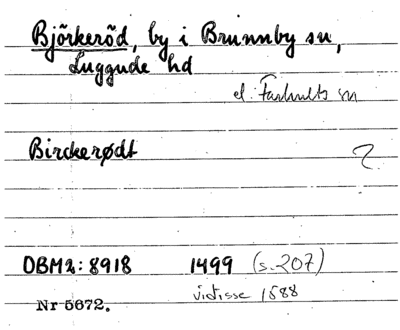 Björkeröd, by i Brunnby sn,
Luggude hd
el. Farhults sn
Birckerødt ?
DBM2: 8918 1499 (s. 207)
vidisse 1588
Nr 5672.